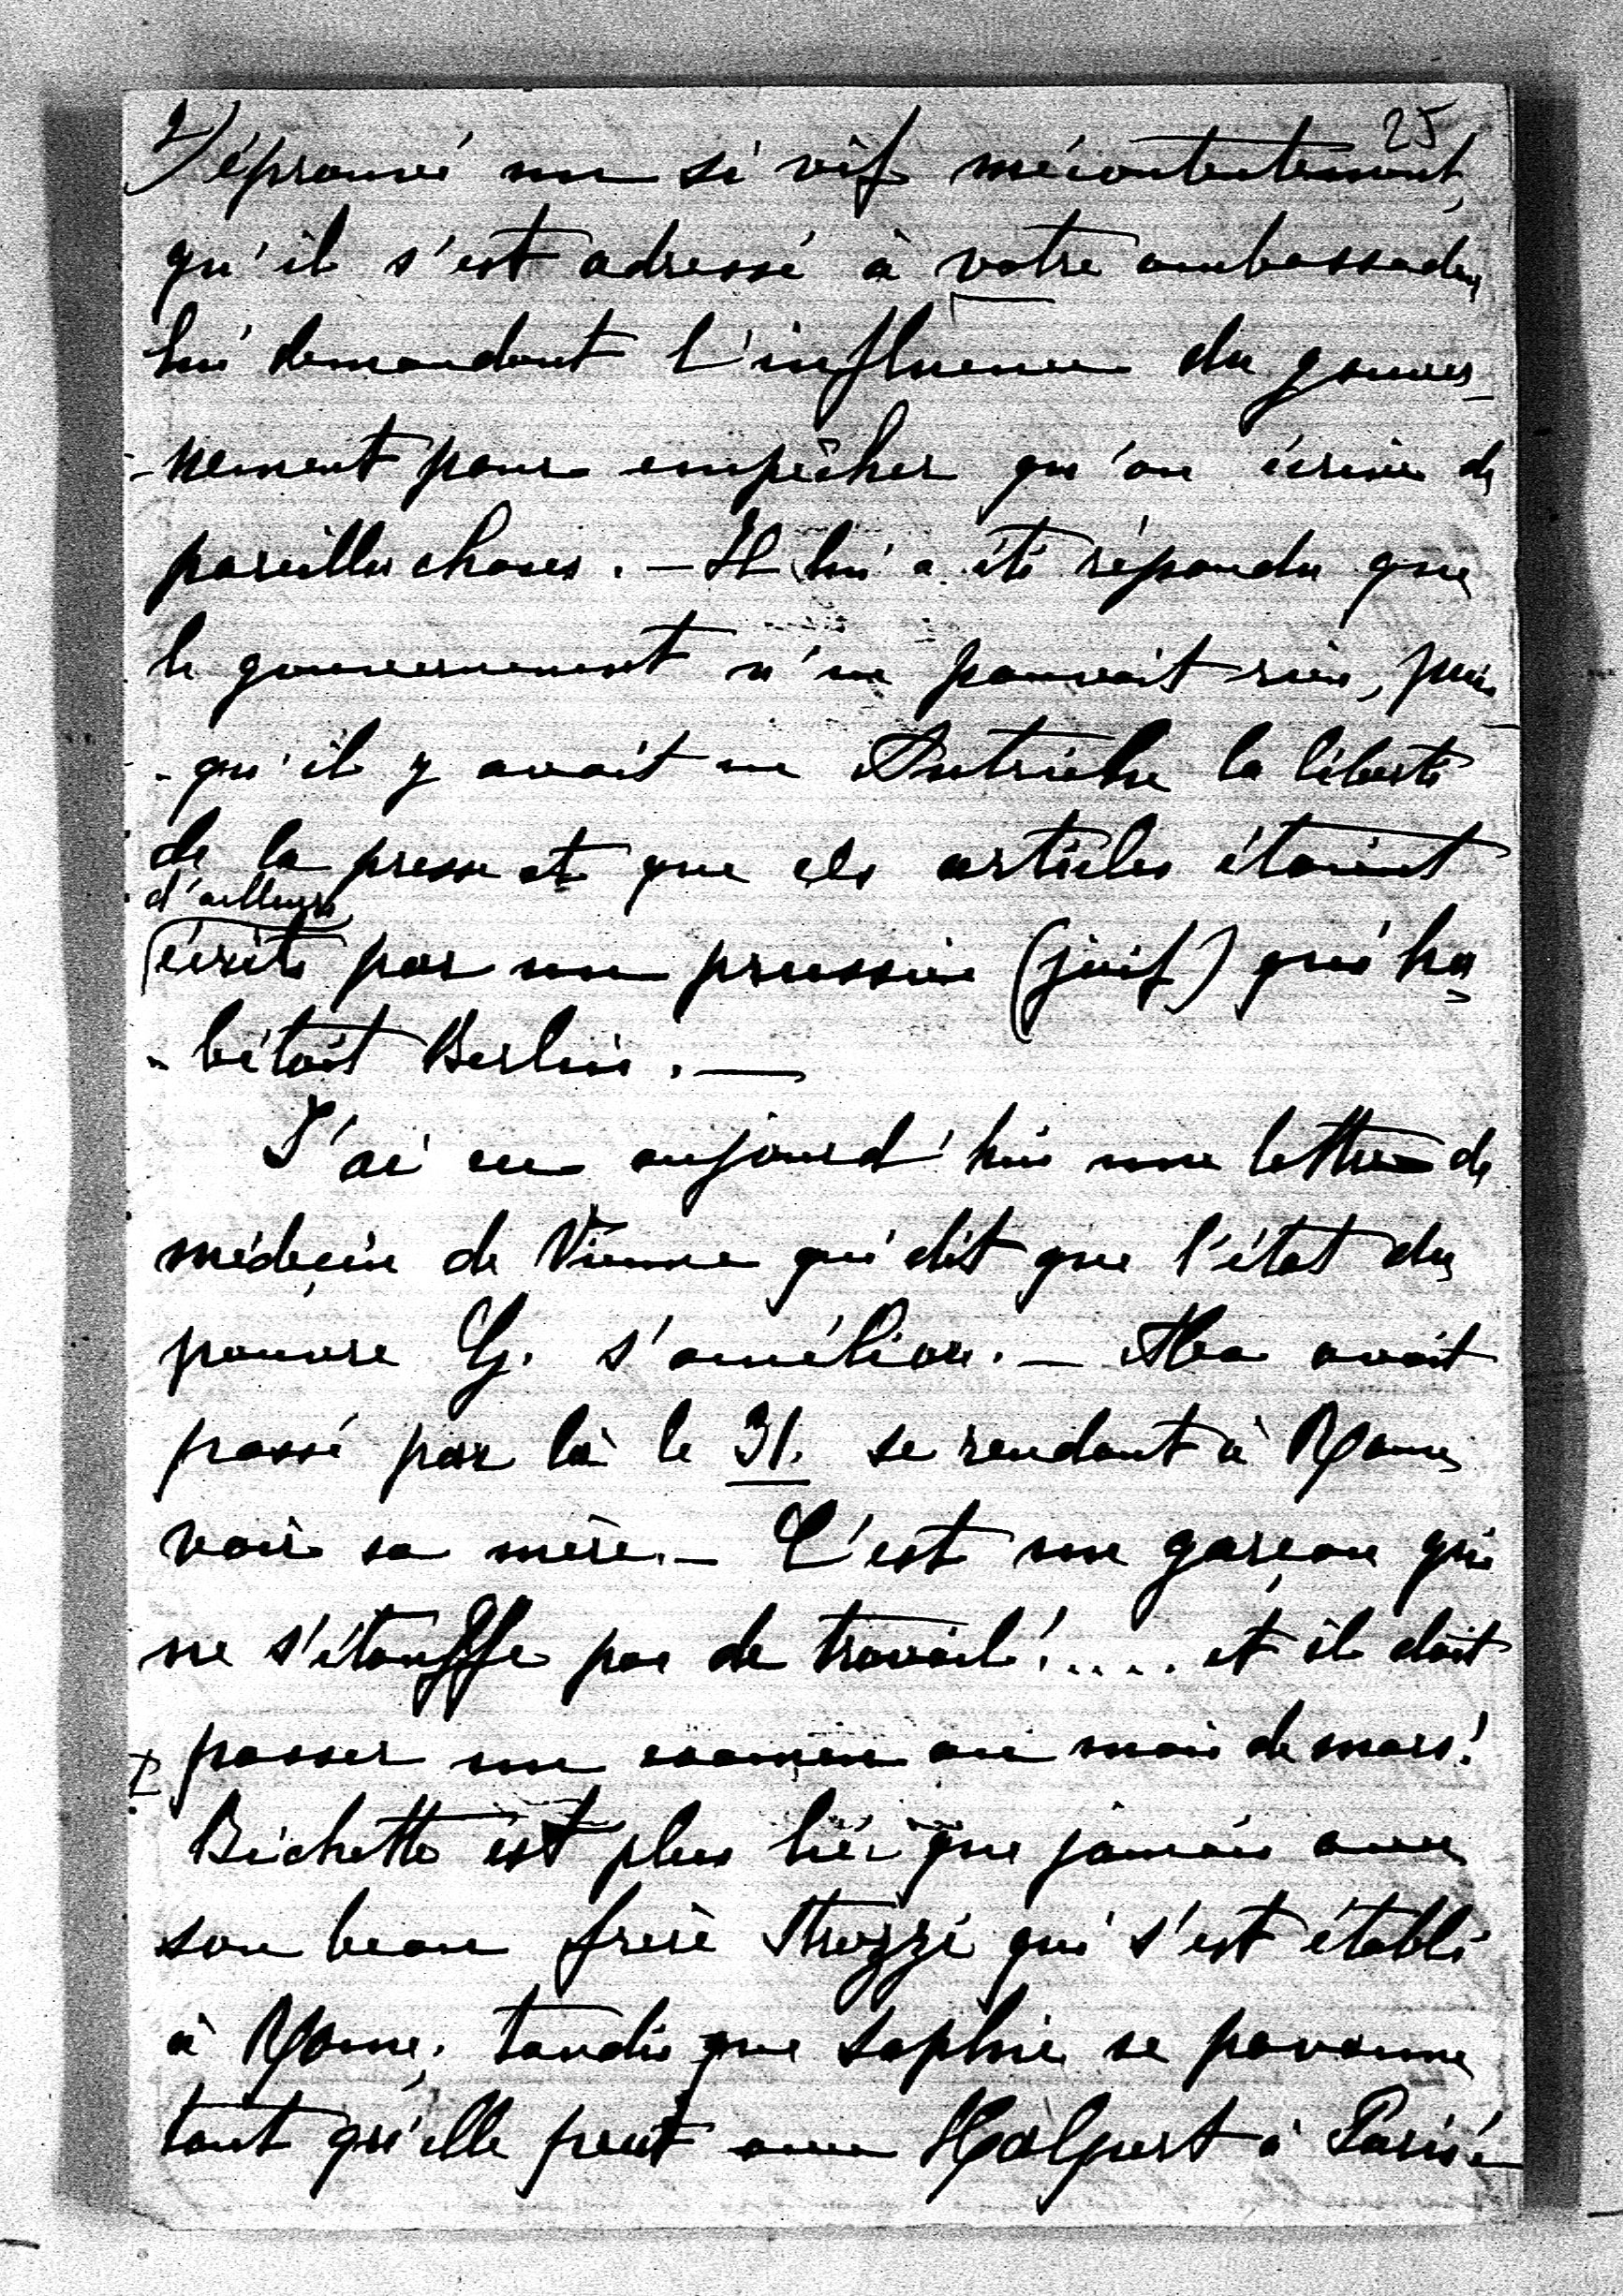 2) 25
éprouvé un si vif mécontentement,
qu'il s'est adressé à votre ambassadeur
lui demandant l'influence du gouver-
-nement pour empêcher qu'on écrive de
pareilles choses. — Il lui a été répondu que
le gouvernement n'en pouvait rien, puis
-qu'il y avait en Autriche la liberté
de la presse et que ces articles étaient
d'ailleurs
écrits par un prussien (juif) qui ha-
-bitait Berlin. —
J'ai eu aujourd'hui une lettre de
médecin de Vienne qui dit que l'état du
pauvre G. s'améliore. — avait
passé par là le 31. se rendant à Rome
voir sa mère. — C'est un garçon qui
ne s'étouffe pas de travail!.... et il doit
passer un examen au mois de mars!
Bichette est plus liée que jamais avec
son beau frère Strozzi qui s'est établi
à Rome, tandis que Sophie se pavanne
tant qu'elle peut avec à Paris